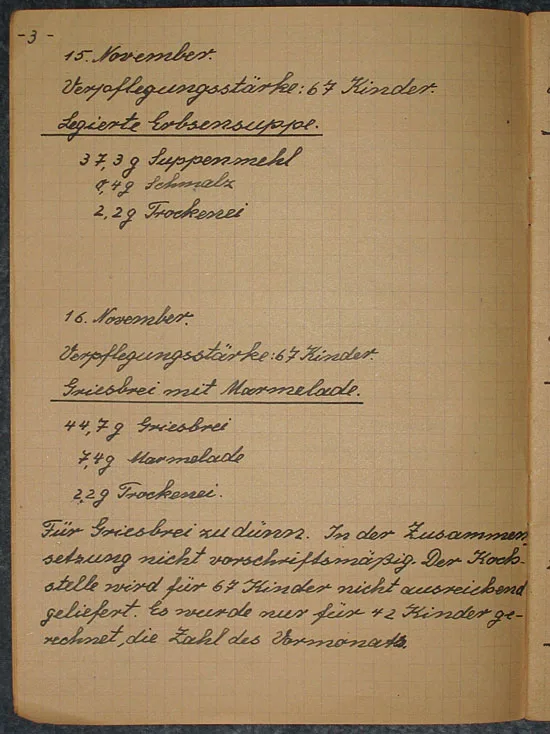 -3-
15. November.
Verpflegungsstärke: 67 Kinder.
Legierte Erbsensuppe.
37,3 g Suppenmehl
0,4 g Schmalz
2,2 g Trockenei
16. November.
Verpflegungsstärke: 67 Kinder.
Griesbrei mit Marmelade.
44,7 g Griesbrei
7,4 g Marmelade
2,2 g Trockenei.
Für Griesbrei zu dünn. In der Zusammen-
setzung nicht vorschriftsmäßig. Der Koch-
stelle wird für 67 Kinder nicht ausreichend
geliefert. Es wurde nur für 42 Kinder ge-
rechnet, die Zahl des Vormonats.